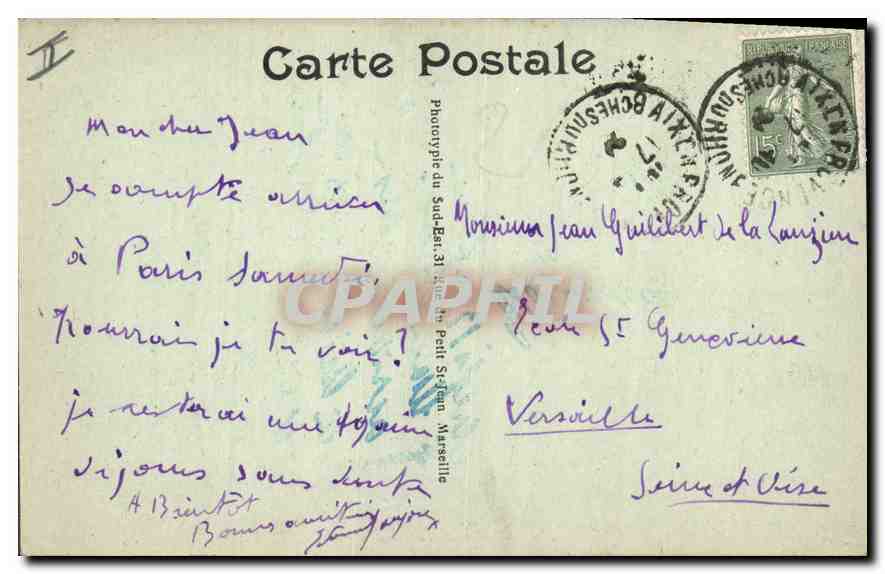 II
Carte Postale
REPUBLIQUE FRANÇAISE
15c
AIX EN PROVENCE
BCHES DU RHONE
Mon cher Jean
Je compte arriver
à Paris samedi.
Pourrai je te voir ?
je resterai une
jours sans doute
A Bientôt
Bonnes amitiés
Phototypie du Sud-Est, 31 Rue du Petit St-Jean Marseille
Monsieur Jean Guilibert de la Lauzière
Ecole St Geneviève
Versaille
Seine et Oise
CPAPHIL